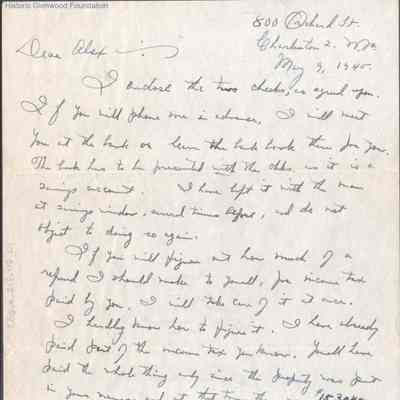 Historic Glenwood Foundation
800 Orchard St.
Charleston 2. W Va
May 9, 1945
Dear Alex
I enclose the two checks, as agreed upon.
If you will phone me in advance, I will meet
you at the bank or leave the bank book there for you.
The book has to be presented with the checks, as it is a
savings account. I have left it with the man
at savings window, several times before, and do not
object to doing so again.
If you will figure out how much of a
refund I should make to youall, for income tax
paid by you, I will take care of it at once.
I hardly know how to figure it. I have already
paid part of the income tax you know. Youall have
paid the whole thing only since the property was put
in your names, and at that time the